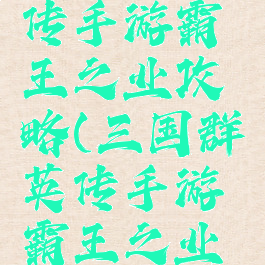 传手游霸
王之业攻
略(三国群
英传手游
霸王之业